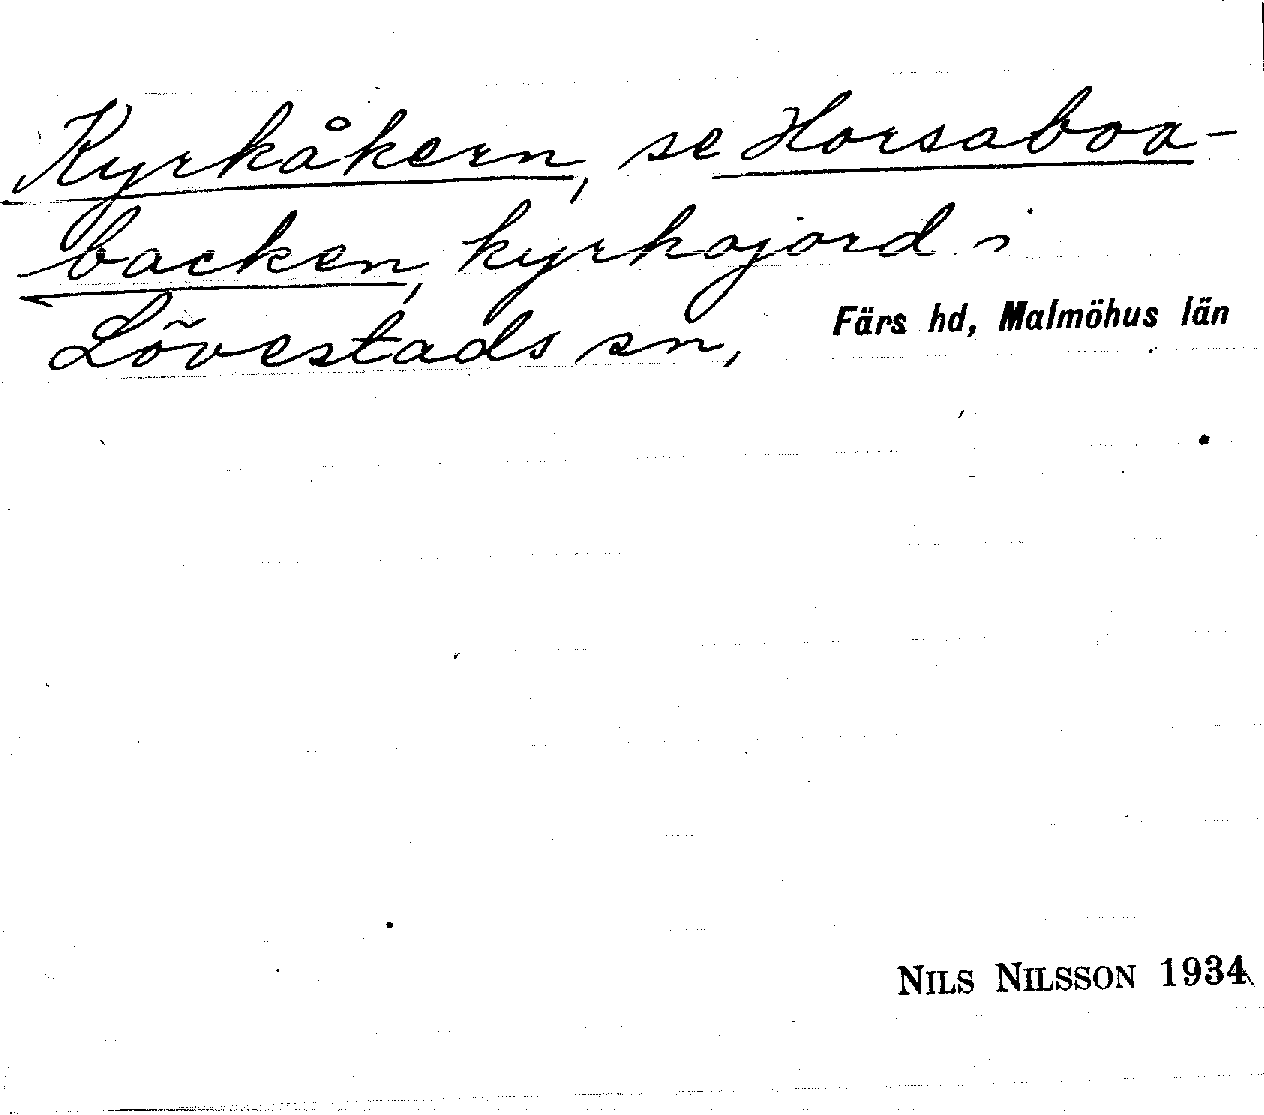 Kyrkåkern, se Horsaboa-
backen, kyrkojord i
Lövestads sn, Färs hd, Malmöhus län
NILS NILSSON 1934